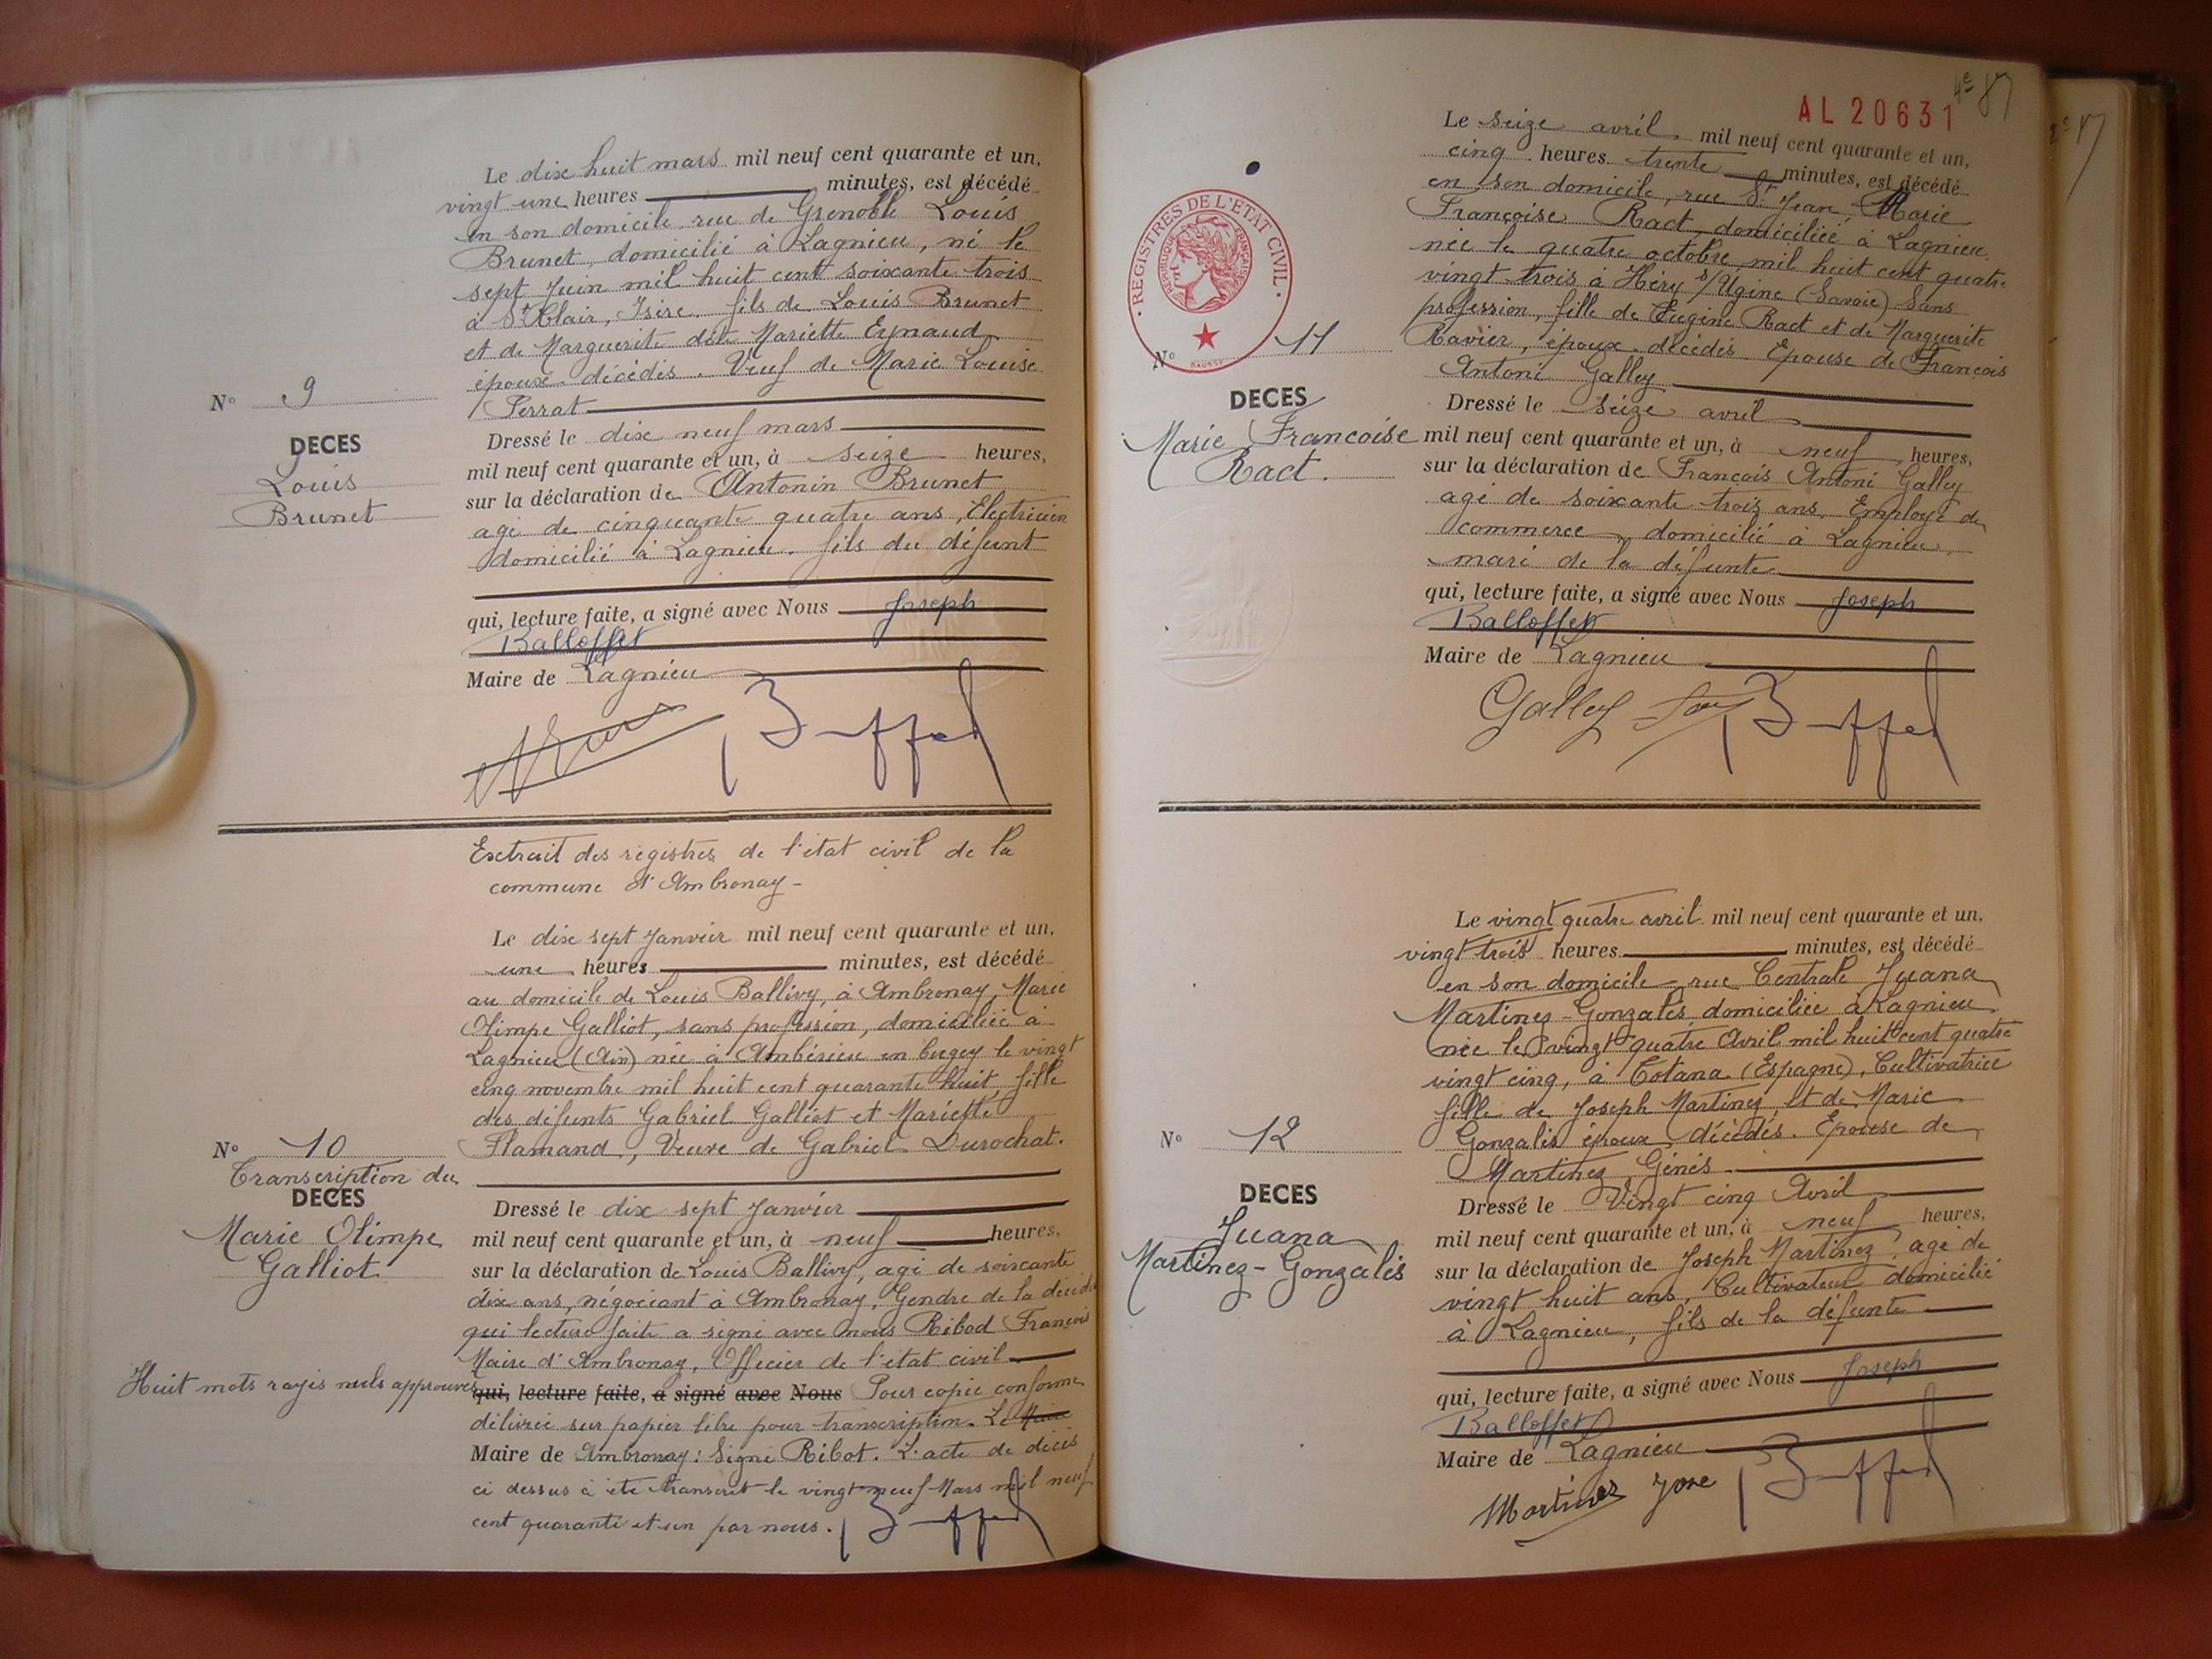 Le dix huit mars mil neuf cent quarante et un,
vingt une heures minutes, est décédé
en son domicile rue de Grenoble Louis
Brunet, domicilié à Lagnieu, né le
sept Juin mil huit cent soixante trois
à St Clair, Isère. fils de Louis Brunet
et de Marguerite dite Mariette Eynaud
époux décédés. Veuf de Marie Louise
Perrat
N° 9
DECES
Louis
Brunet
Dressé le dix neuf mars
mil neuf cent quarante et un, à seize heures,
sur la déclaration de Antonin Brunet
agé de cinquante quatre ans, Electricien
domicilié à Lagnieu. fils du défunt
qui, lecture faite, a signé avec Nous Joseph
Balloffet
Maire de Lagnieu
Extrait des registres de l'état civil de la
commune d'Ambronay-
Le dix sept Janvier mil neuf cent quarante et un,
une heures minutes, est décédé
au domicile de Louis Ballivy, à Ambronay, Marie
Olimpe Galliot, sans profession, domiciliée à
Lagnieu (Ain) née à Ambérieu en bugey le vingt
cinq novembre mil huit cent quarante huit, fille
des défunts Gabriel Galliot et Mariette
Flamand, Veuve de Gabriel Durochat.
N° 10
Transcription du
DECES
Marie Olimpe
Galliot
Dressé le dix sept Janvier
mil neuf cent quarante et un, à neuf heures,
sur la déclaration de Louis Ballivy, agé de soixante
dix ans, négociant à Ambronay, Gendre de la décédée
qui lecture faite a signé avec nous Ribod François
Maire d'Ambronay, Officier de l'état civil
Huit mots rayés nuls approuvés
qui, lecture faite, a signé avec Nous Pour copie conforme
délivrée sur papier libre pour transcription. Le Maire
Maire de Ambronay: Signé Ribot. L'acte de décès
ci dessus à été transcrit le vingt neuf Mars mil neuf
cent quarante et un par nous.
AL 20631
4e 87
Le seize avril mil neuf cent quarante et un,
cinq heures trente minutes, est décédé
en son domicile, rue St Jean, Marie
Françoise Ract, domiciliée à Lagnieu
née le quatre octobre mil huit cent quatre
vingt trois à Héry s/Ugine (Savoie) Sans
profession, fille de Eugène Ract et de Marguerite
Ravier, époux décédés Epouse de François
Antoni Galley
REGISTRES DE L'ÉTAT CIVIL
RÉPUBLIQUE FRANÇAISE
N° 11
DECES
Marie Françoise
Ract.
Dressé le seize avril
mil neuf cent quarante et un, à neuf heures,
sur la déclaration de François Antoni Galley
agé de soixante trois ans, Employé de
commerce domicilié à Lagnieu,
mari de la défunte
qui, lecture faite, a signé avec Nous Joseph
Balloffet
Maire de Lagnieu
Galley
Le vingt quatre avril mil neuf cent quarante et un,
vingt trois heures minutes, est décédé
en son domicile - rue Centrale Juana
Martinez-Gonzalès domiciliée à Lagnieu
née le vingt quatre Avril mil huit cent quatre
vingt cinq, à Totana (Espagne), Cultivatrice
fille de Joseph Martinez, et de Marie
Gonzalès époux décédés. Epouse de
Martinez Génés
N° 12
DECES
Juana
Martinez-Gonzalès
Dressé le Vingt cinq Avril
mil neuf cent quarante et un, à neuf heures,
sur la déclaration de Joseph Martinez agé de
vingt huit ans, Cultivateur domicilié
à Lagnieu, fils de la défunte
qui, lecture faite, a signé avec Nous Joseph
Balloffet
Maire de Lagnieu
Martinez Jose